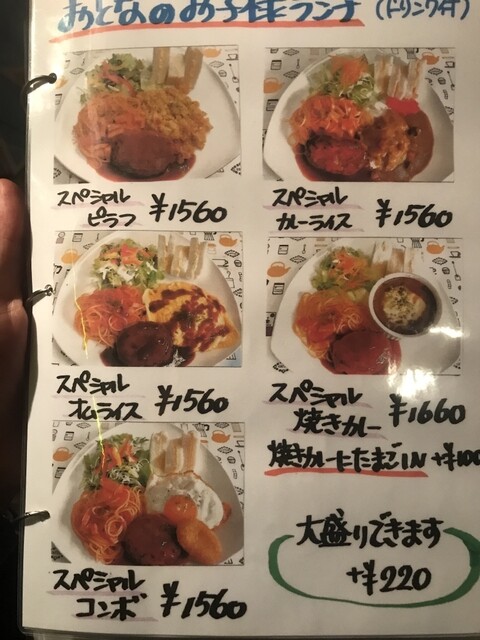 おとなのお子様ランチ (ドリンク付)
スペシャル
ピラフ ¥1560
スペシャル
カレーライス ¥1560
スペシャル
オムライス ¥1560
スペシャル
焼きカレー ¥1660
焼きカレーにたまごIN +¥100
スペシャル
コンボ ¥1560
大盛りできます
+¥220